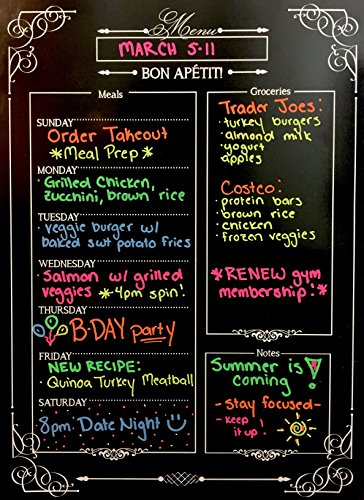 Menu
MARCH 5-11
BON APÉTIT!
Meals
SUNDAY
Order Takeout
*Meal Prep*
MONDAY
• Grilled Chicken,
zucchini, brown rice
TUESDAY
• veggie burger w/
baked swt potato fries
WEDNESDAY
• Salmon w/ grilled
veggies *4pm spin!
THURSDAY
B-DAY party
FRIDAY
NEW RECIPE:
• Quinoa Turkey Meatball
SATURDAY
8pm: Date Night
Groceries
Trader Joes:
• turkey burgers
• almond milk
• yogurt
• apples
Costco:
• protein bars
• brown rice
• chicken
• frozen veggies
*RENEW gym
membership!*
Notes
Summer is
coming !
- stay focused -
- keep
it up!